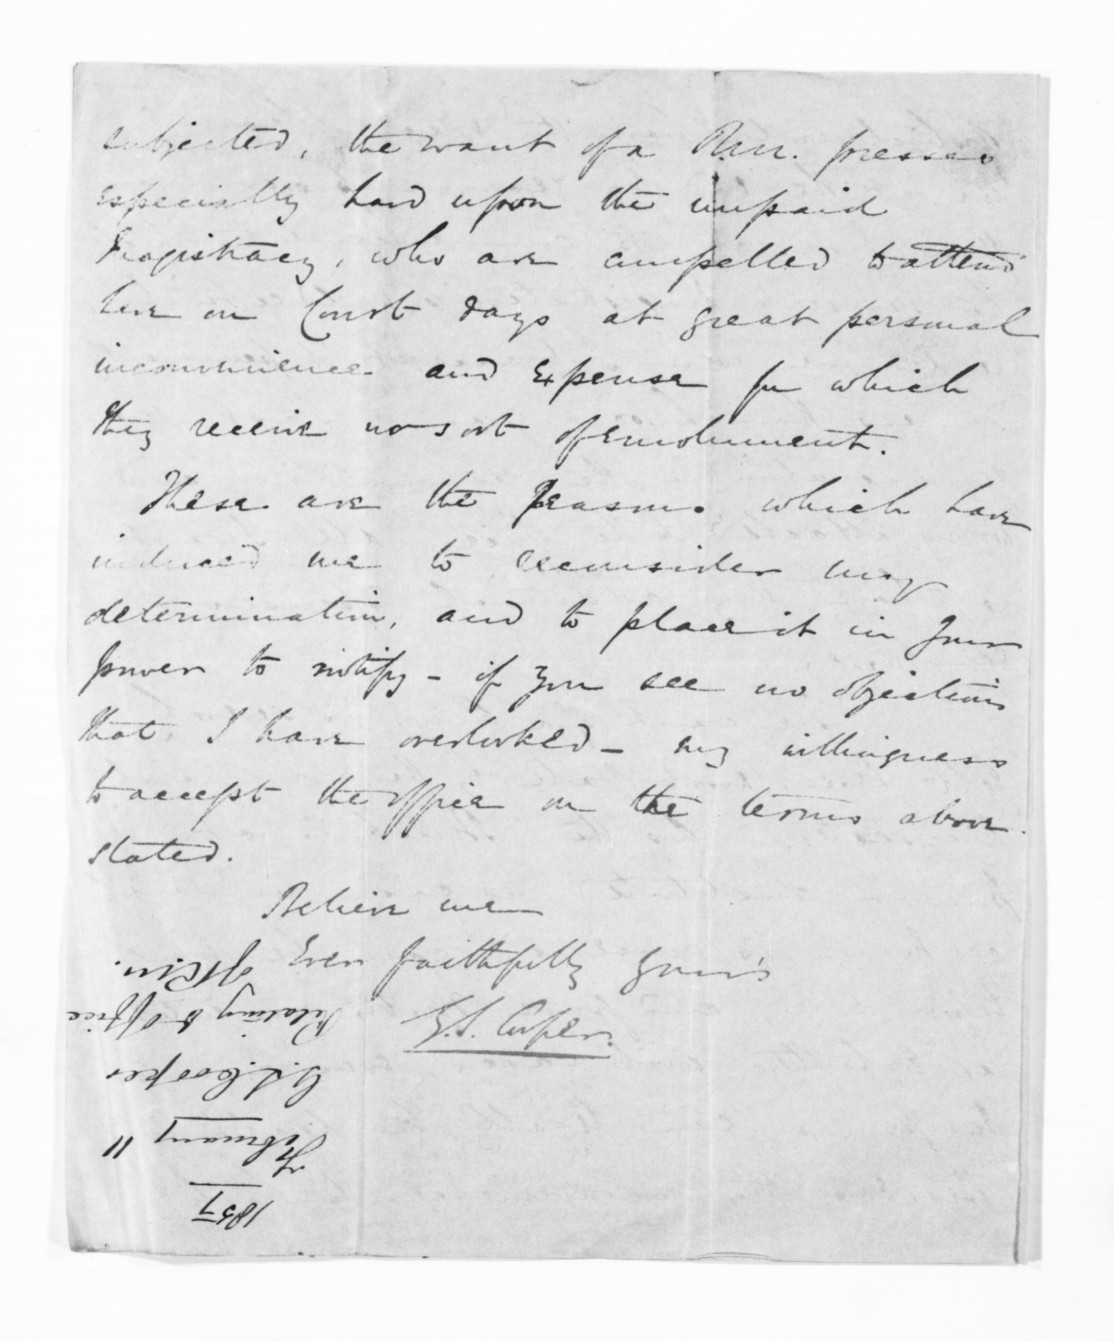 subjected, the want of a R.M. presses
especially hard upon the unpaid
Magistracy, who are compelled to attend
here on Court days at great personal
inconvenience and expense for which
they receive no sort of emolument.
These are the reasons which have
induced me to reconsider my
determination, and to place it in your
power to notify - if you see no objections
that I have overlooked - my willingness
to accept the office on the terms above
stated.
Believe me
Ever faithfully your's
G.S. Cooper.
1857
February 11
G.S. Cooper
Relating to Office
of R.M.